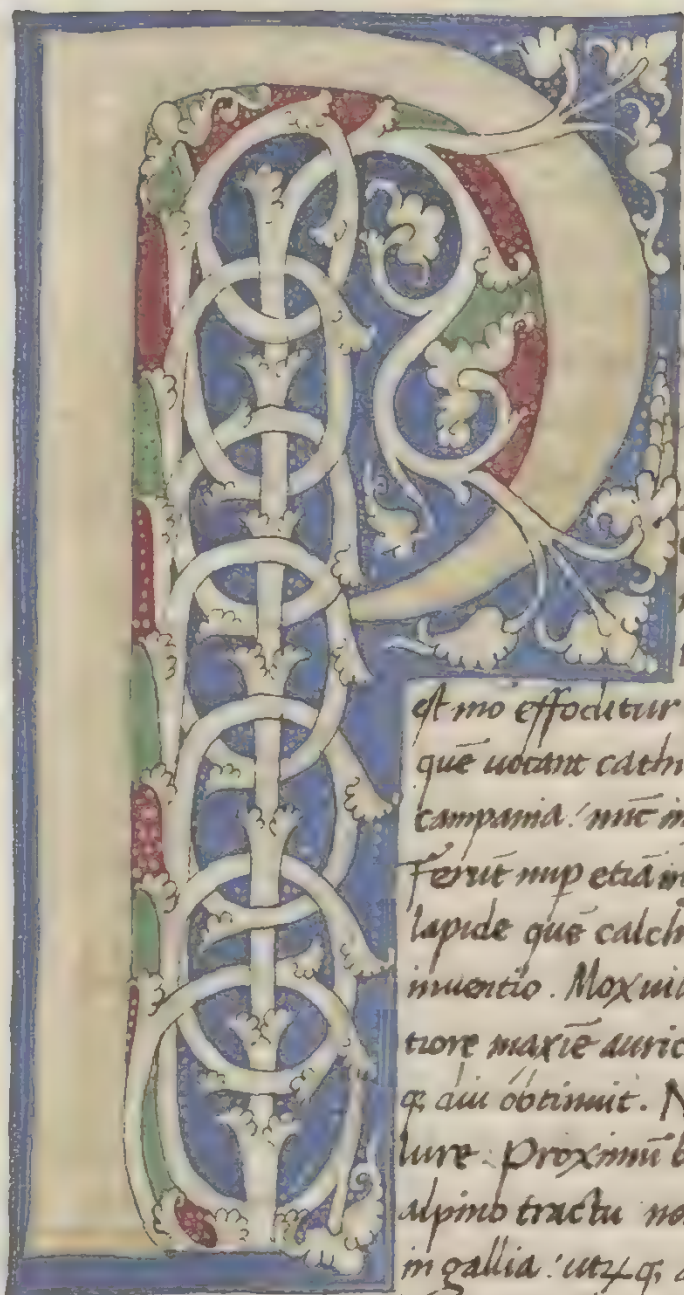 P
est mō effoditur
quē uocant cadm
campania. nūc in
Ferūt nup etiā in
lapide quē calchi
inuentio. Mox uil
tiore maxīe auric
q; diu obtinuit. N
lure. Proximū
alpino tractu
in gallia.